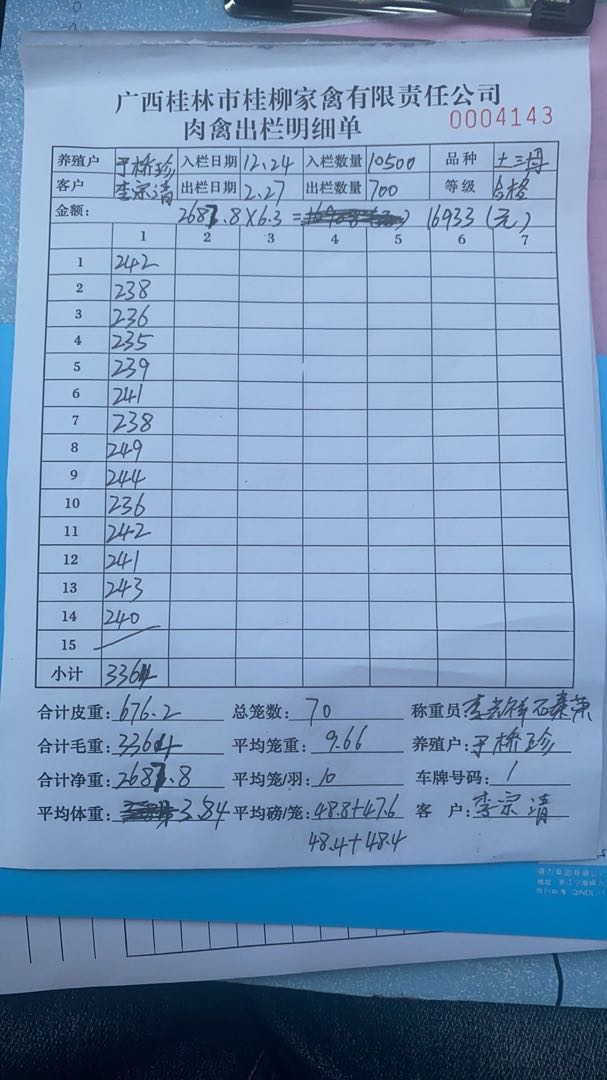 广西桂林市桂柳家禽有限责任公司
肉禽出栏明细单 0004143
养殖户 于桥珍 入栏日期 12.24 入栏数量 10500 品种 土三丹
客户 李宗清 出栏日期 2.27 出栏数量 700 等级 合格
金额: 2687.8×6.3= 16933(元)
1 2 3 4 5 6 7
1 242
2 238
3 236
4 235
5 239
6 241
7 238
8 249
9 244
10 236
11 242
12 241
13 243
14 240
15
小计 3364
合计皮重: 676.2 总笼数: 70 称重员:
合计毛重: 3364 平均笼重: 9.66 养殖户: 于桥珍
合计净重: 2687.8 平均笼/羽: 10 车牌号码: 1
平均体重: 3.84 平均磅/笼: 48.8+47.6 客 户: 李宗清
48.4+48.4